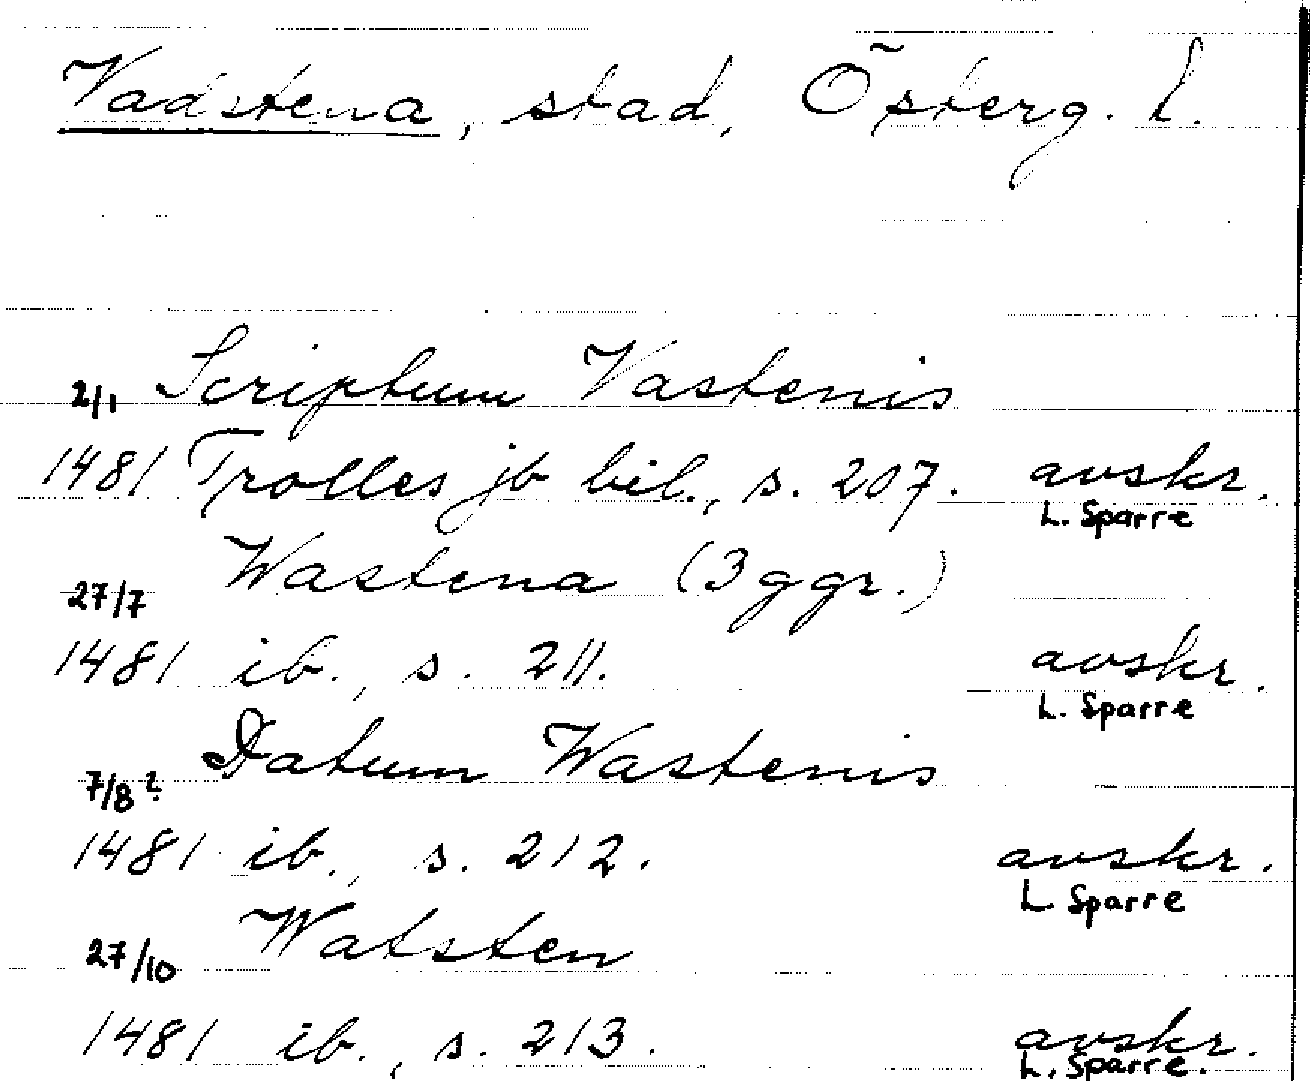 Vadstena, stad, Österg. l.
2/1 Scriptum Vastenis
1481 Trolles jb bil., s. 207. avskr.
L. Sparre
27/7 Wastena (3 ggr.)
1481 ib., s. 211. avskr.
L. Sparre
7/8? Datum Wastenis
1481 ib., s. 212. avskr.
L Sparre
27/10 Watsten
1481 ib., s. 213. avskr.
L. Sparre.